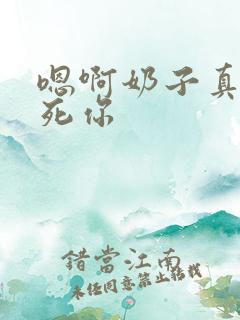 嗯啊奶子真
死你
錯當江南
未经同意禁止转载